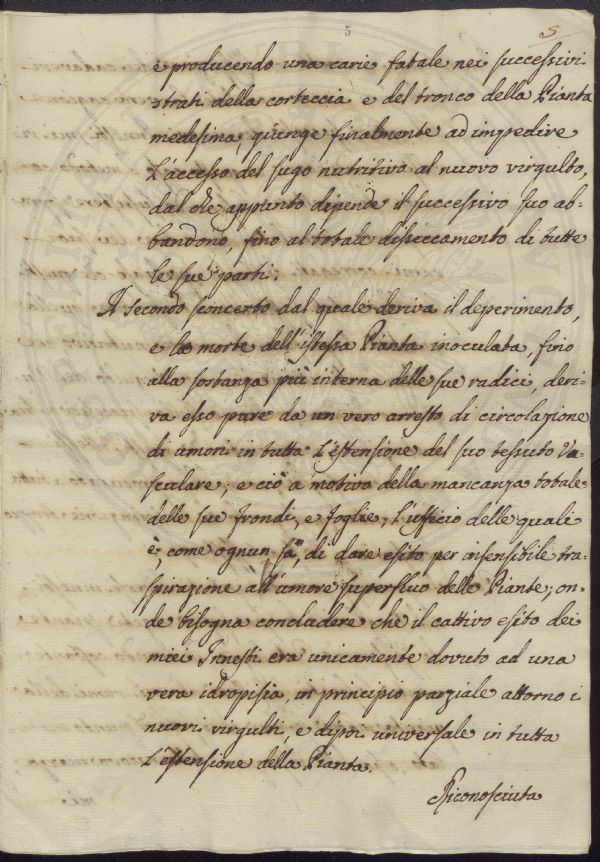 5 5
e producendo una carie fatale nei successivi
strati della corteccia e del tronco della Pianta
medesima, giunge finalmente ad impedire
l'accesso del sugo nutritivo al nuovo virgulto,
dal che appunto dipende il successivo suo ab-
bandono, fino al totale disseccamento di tutte
le sue parti.
Il secondo sconcerto dal quale deriva il deperimento,
e la morte dell'istessa Pianta inoculata, fino
alla sostanza più interna delle sue radici, deri-
va esso pure da un vero arresto di circolazione
di umori in tutta l'estensione del suo tessuto Va-
sculare; e ciò a motivo della mancanza totale
delle sue frondi, e foglie, l'ufficio delle quali
è, come ognun sà, di dare esito per insensibile tra-
spirazione all'umore superfluo delle Piante; on-
de bisogna concludere che il cattivo esito dei
miei Innesti era unicamente dovuto ad una
vera idropisia, in principio parziale attorno i
nuovi virgulti, e dipoi universale in tutta
l'estensione della Pianta.
Riconosciuta